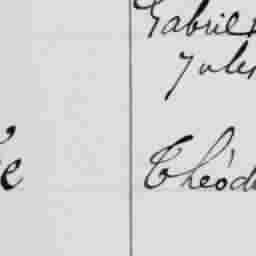 Gabriel
Jules
é Théod